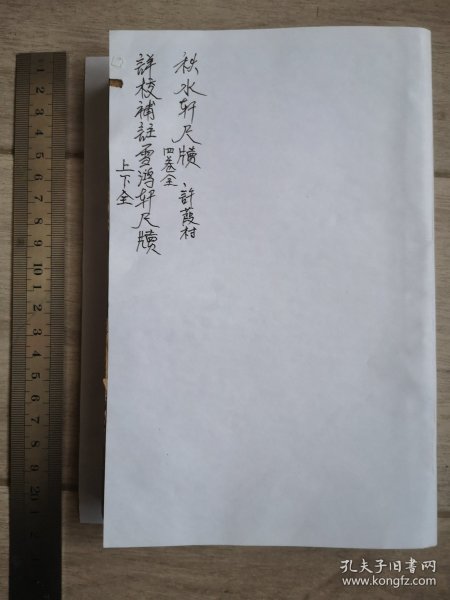 秋水轩尺牘 四卷全 許葭村
詳校補註雪鴻轩尺牘 上下全
1 2 3 4 5 6 7 8 9 10 1 2 3 4 5 6 7 8 9 20 1 2
孔夫子旧书网
www.kongfz.com